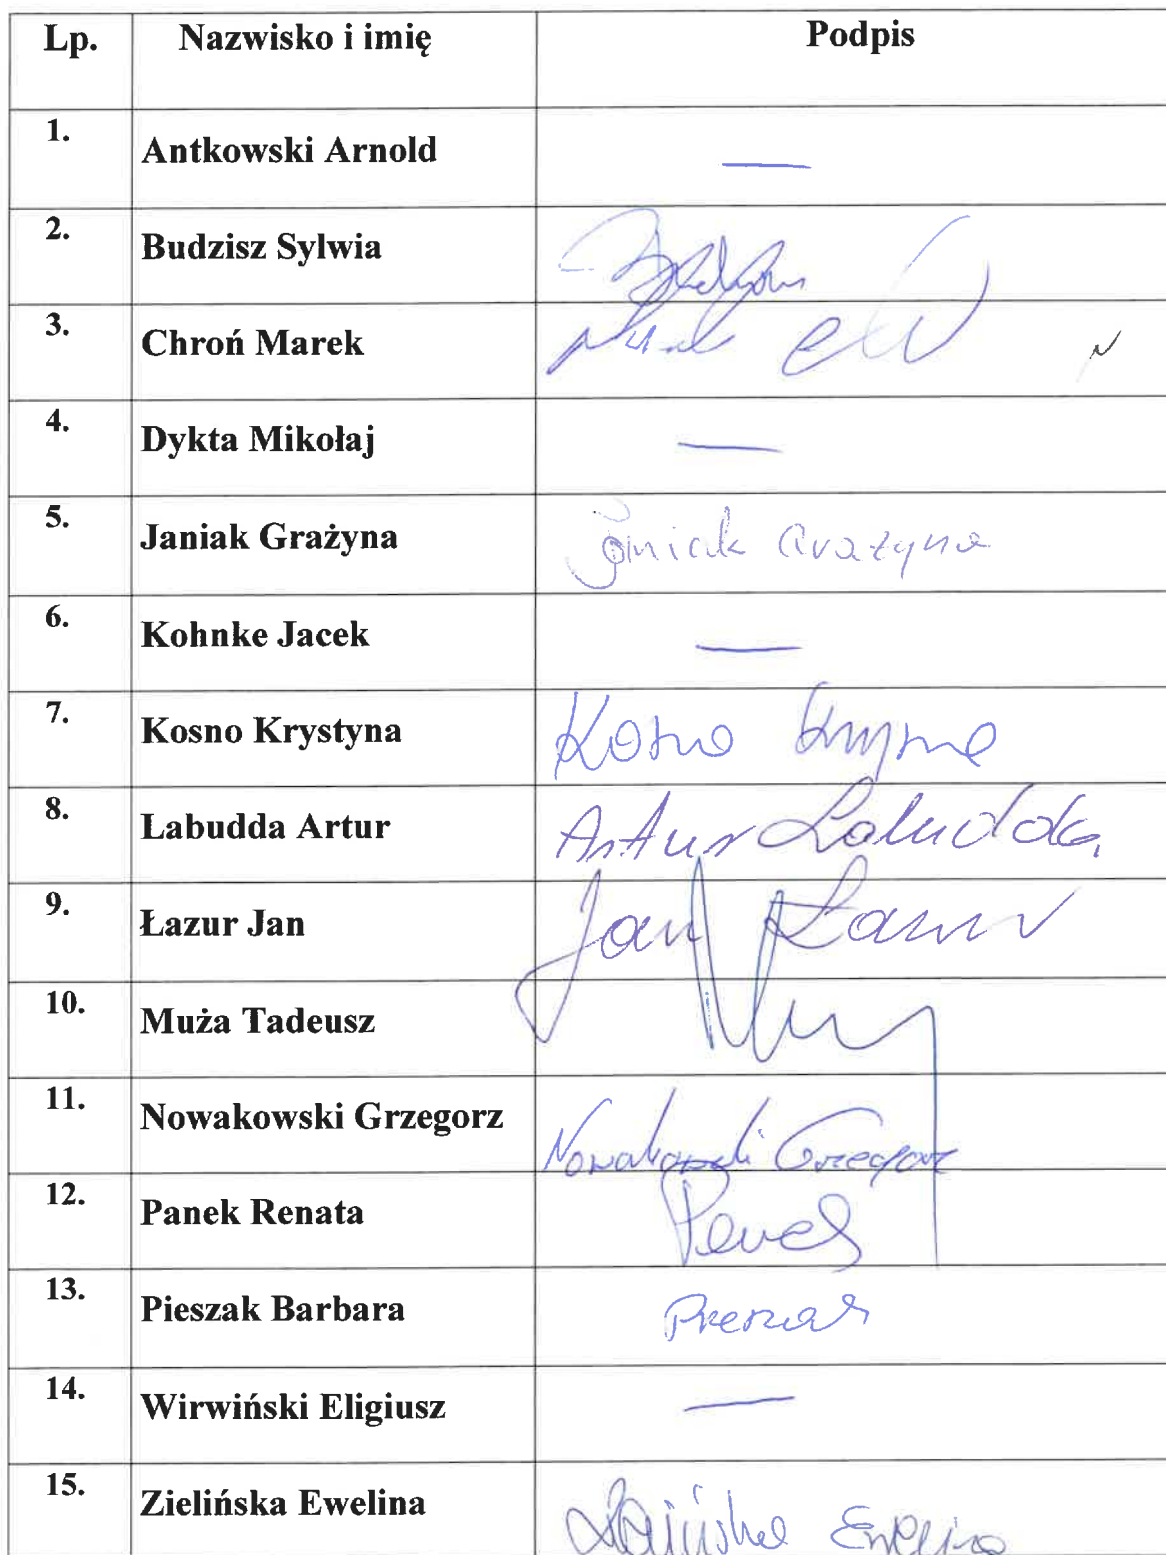 Lp. Nazwisko i imię Podpis
1. Antkowski Arnold —
2. Budzisz Sylwia
3. Chroń Marek
4. Dykta Mikołaj —
5. Janiak Grażyna Janiak Grażyna
6. Kohnke Jacek —
7. Kosno Krystyna Kosno
8. Labudda Artur Artur Labudda
9. Łazur Jan Jan Łazur
10. Muża Tadeusz
11. Nowakowski Grzegorz Nowakowski Grzegorz
12. Panek Renata Panek
13. Pieszak Barbara Pieszak
14. Wirwiński Eligiusz —
15. Zielińska Ewelina Zielińska Ewelina